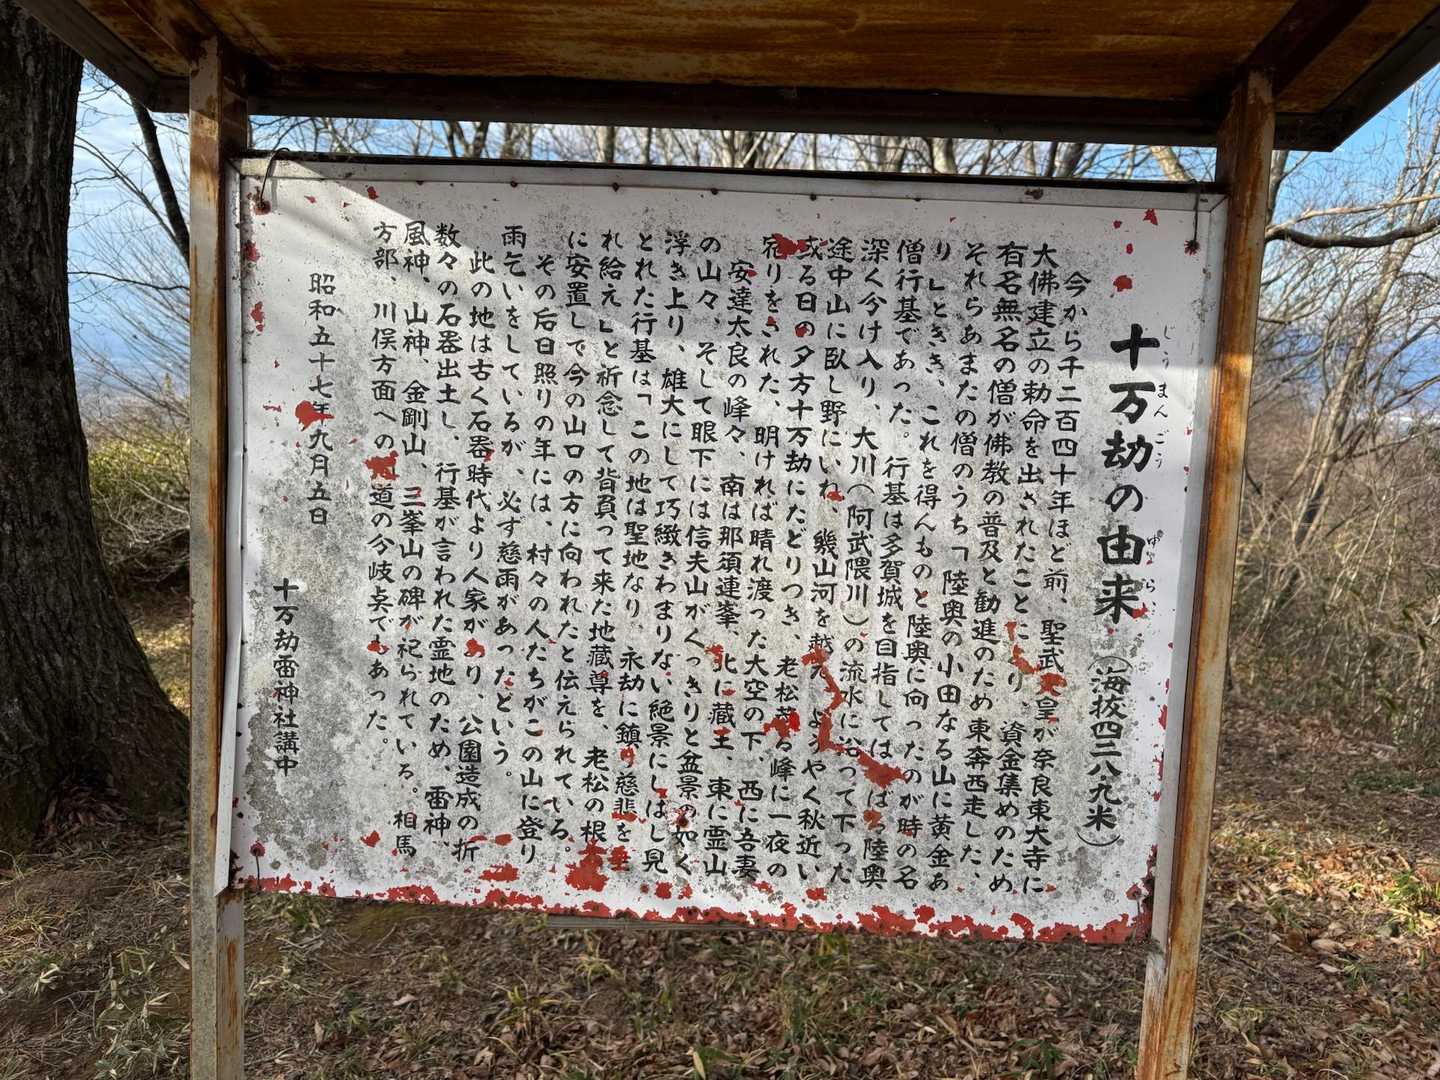 十万劫の由来（海抜四三八九米）
じうまんごう ゆらい
今から千二百四十年ほど前、聖武天皇が奈良東大寺に
大佛建立の勅命を出されたことにより、資金集めのため
有名無名の僧が佛教の普及と勧進のため東奔西走した、
それらあまたの僧のうち「陸奥の小田なる山に黄金あ
り」ときき、これを得んものと陸奥に向ったのが時の名
僧行基であった。行基は多賀城を目指しては ば っ陸奥
深く分け入り、大川（阿武隈川）の流水に沿って下った
途中山に臥し野にいね、幾山河を越え、ようやく秋近い
或る日の夕方十万劫にたどりつき、老松茂る峰に一夜の
宛りをされた、明ければ晴れ渡った大空の下、西に吾妻
安達太良の峰々、南は那須連峯、北に蔵王、東に霊山
の山々、そして眼下には信夫山がくっきりと盆景の如く
浮き上り、雄大にして巧緻きわまりない絶景にしばし見
とれた行基は「この地は聖地なり、永劫に鎮り慈悲を垂
れ給え」と祈念して背負って来た地蔵尊を 老松の根
に安置して今の山口の方に向われたと伝えられている。
その后日照りの年には、村々の人たちがこの山に登り
雨乞いをしているが、必ず慈雨があったという。
此の地は古く石器時代より人家があり、公園造成の折
数々の石器出土し、行基が言われた霊地のため、雷神、
風神、山神、金剛山、三峯山の碑が祀られている。相馬
方部 川俣方面への 道の分岐点でもあった。
昭和五十七年九月五日
十万劫雷神社講中